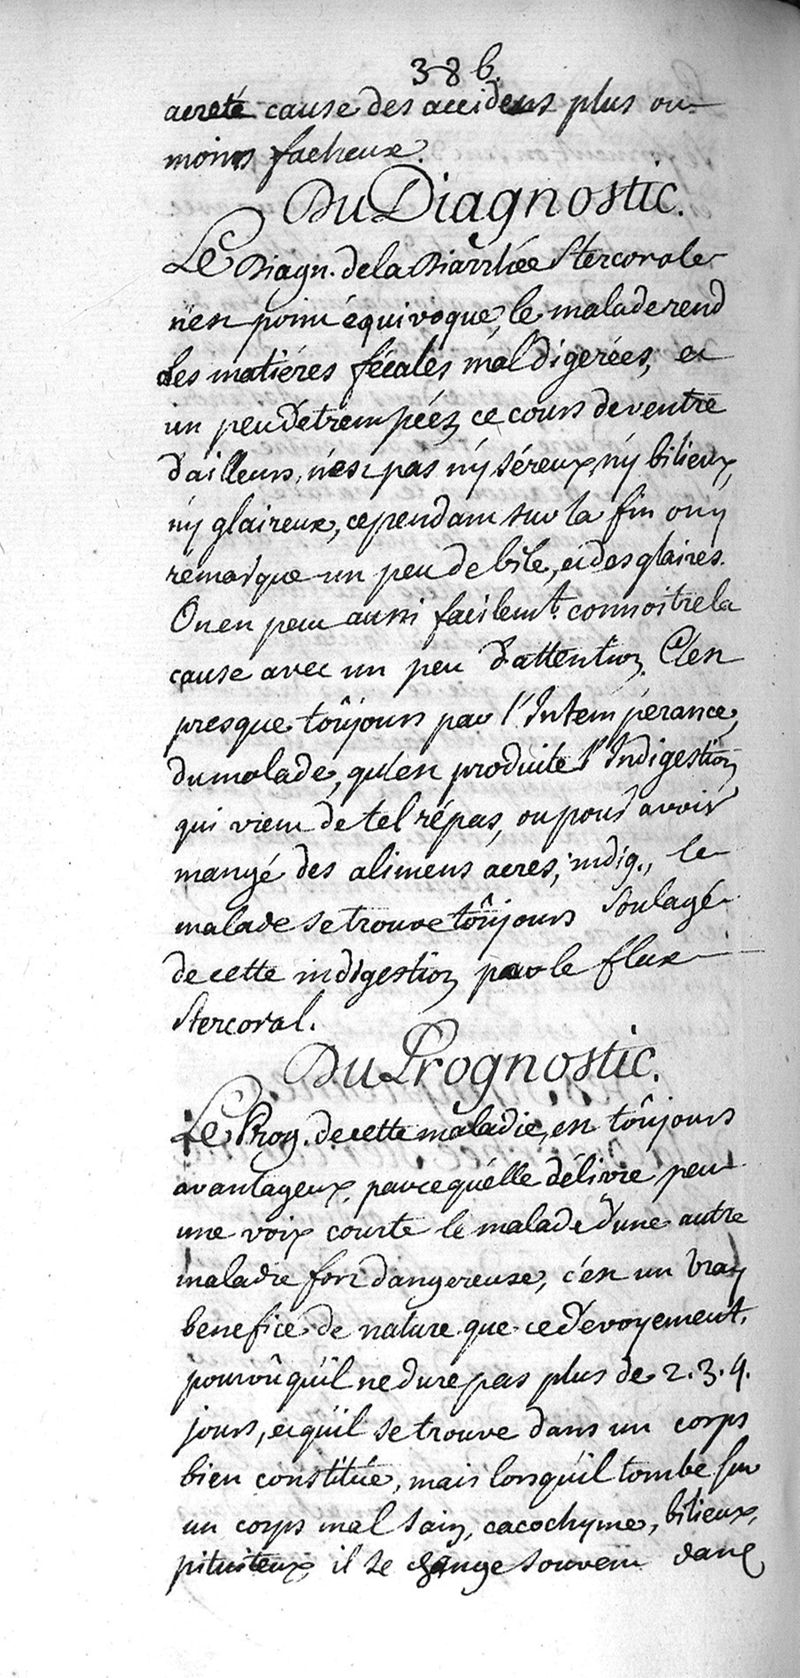 386.
acreté cause des accidens plus ou
moins facheux.
Du Diagnostic.
Le Diagn. de la Diarrhée Stercorale
n'est point équivoque, le malade rend
des matiéres fécales mal digerées, et
un peu détrempées, ce cours de ventre
d'ailleurs, n'est pas n'y séreux, n'y bilieux,
n'y glaireux, cependant sur la fin on y
remarque un peu de bile, et des glaires.
On en peut aussi facilemt. connoitre la
cause avec un peu d'attention. C'est
presque toûjours par l'Intempérance,
du malade, qu'est produite l'Indigestion
qui vient de tel répas, ou pour avoir
mangé des alimens acres, indig., le
malade se trouve toûjours soulagé
de cette indigestion par le flux
stercoral.
Du Prognostic.
Le Prog. de cette maladie, est toûjours
avantageux, parce quélle délivre peur
une voix courte le malade d'une autre
maladie fort dangereuse, c'est un vray
benefice de nature que ce dévoyement,
pourvû qu'il ne dure pas plus de 2. 3. 4.
jours, et qu'il se trouve dans un corps
bien constitué, mais lorsqu'il tombe sur
un corps mal sain, cacochyme, bilieux,
pituiteux, il se change souvent dans